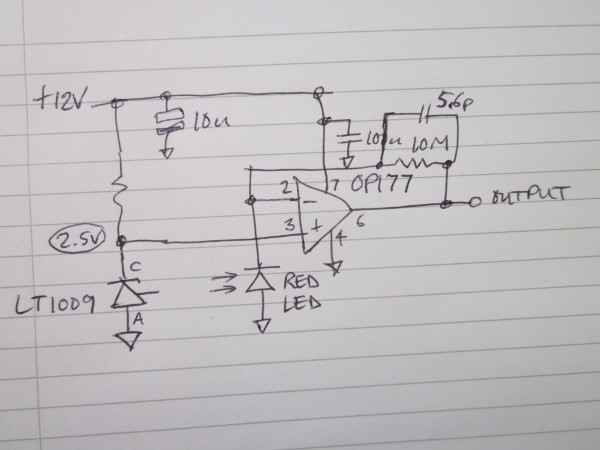 +12V
10u
5.6p
10u
10M
2
7
OP177
-
3
+
6
4
OUTPUT
2.5V
C
LT1009
A
RED
LED